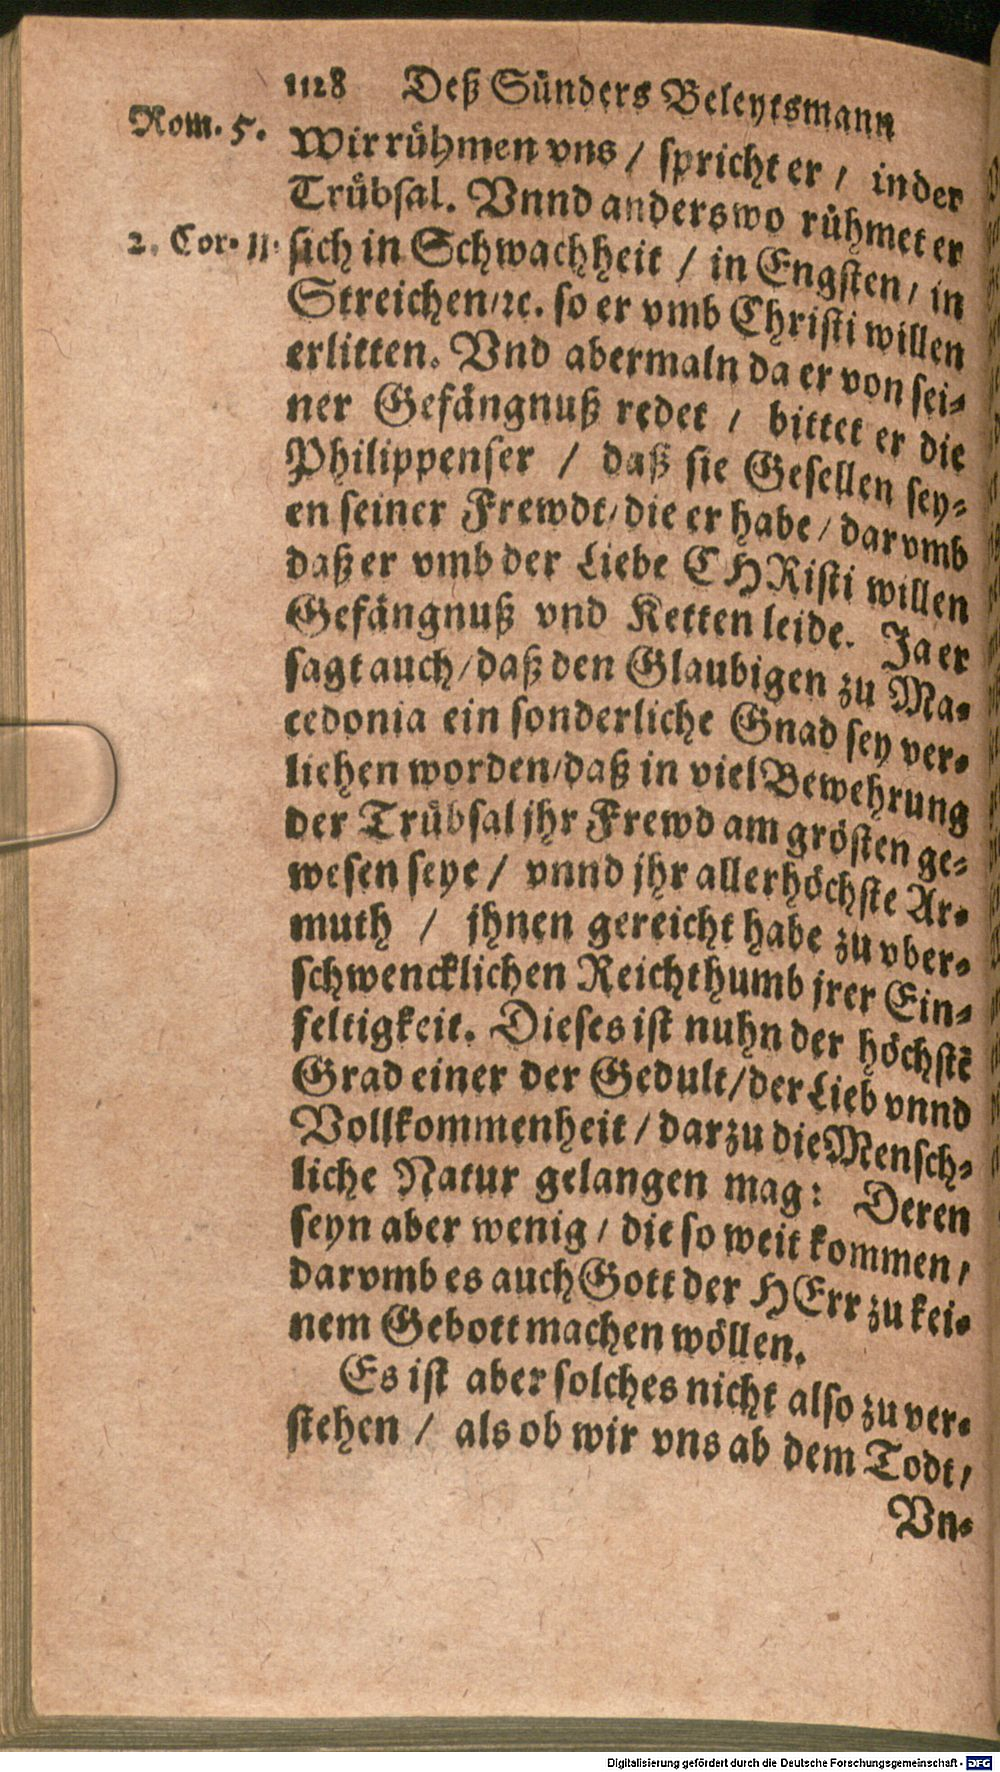 1128 Deß Sünders Beleytsmann
Rom. 5.
Wir rühmen vns / spricht er / in der
Trübsal. Vnnd anderswo rühmet er
2. Cor. 11.
sich in Schwachheit / in Engsten / in
Streichen / ꝛc. so er vmb Christi willen
erlitten. Vnd abermaln da er von sei-
ner Gefängnuß redet / bittet er die
Philippenser / daß sie Gesellen sey-
en seiner Frewdt / die er habe / darvmb
daß er vmb der Liebe CHRisti willen
Gefängnuß vnd Ketten leide. Ja er
sagt auch / daß den Glaubigen zu Ma-
cedonia ein sonderliche Gnad sey ver-
liehen worden / daß in viel Bewehrung
der Trübsal jhr Frewd am grösten ge-
wesen seye / vnnd jhr allerhöchste Ar-
muth / jhnen gereicht habe zu vber-
schwencklichen Reichthumb jrer Ein-
feltigkeit. Dieses ist nuhn der höchstẽ
Grad einer der Gedult / der Lieb vnnd
Vollkommenheit / darzu die Mensch-
liche Natur gelangen mag: Deren
seyn aber wenig / die so weit kommen /
darvmb es auch Gott der HErr zu kei-
nem Gebott machen wöllen.
Es ist aber solches nicht also zu ver-
stehen / als ob wir vns ab dem Todt /
Vn-
Digitalisierung gefördert durch die Deutsche Forschungsgemeinschaft - DFG